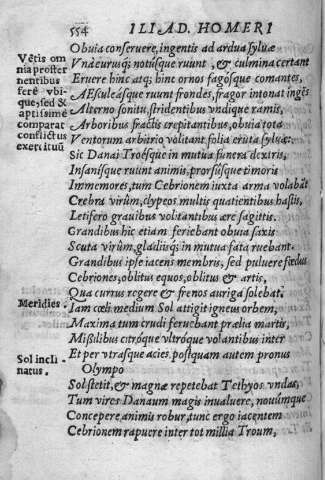 554 ILIAD. HOMERI
Obuia conseruere, ingentis ad ardua syluæ
Vnà eurusq; notusque ruunt, & culmina certant
Eruere hinc atq; hinc ornos fagosque comantes,
AEsculeasque ruunt frondes, fragor intonat ingēs
Alterno sonitu, stridentibus vndique ramis,
Arboribus fractis crepitantibus, obuia tota
Ventorum arbitrio volitant folia eruta sylua:
Sic Danai Troësque in mutua funera dextris,
Insanisque ruunt animis, prorsusque timoris
Immemores, tum Cebrionem iuxta arma volabāt
Crebra virûm, clypeos multis quatientibus hastis,
Letifero grauibus volitantibus ære sagittis.
Grandibus hîc etiam feriebant obuia saxis
Scuta virûm, gladiisq; in mutua fata ruebant.
Grandibus ipse iacens membris, sed puluere fœdus
Cebriones, oblitus equos, oblitus & artis,
Qua currus regere & frenos auriga solebat.
Iam cœli medium Sol attigit igneus orbem,
Maxima tum crudi feruebant prælia martis,
Missilibus citróque vltróque volantibus inter
Et per vtrasque acies. postquam autem pronus
Olympo
Sol stetit, & magnæ repetebat Tethyos vndas,
Tum vires Danaum magis inualuere, nouúmque
Concepere animis robur, tunc ergo iacentem
Cebrionem rapuere inter tot millia Troum,
Vētis om
nia proster
nentibus
ferè vbi-
que, sed &
aptissimè
comparat
conflictus
exercituū
Meridies.
Sol incli
natus.